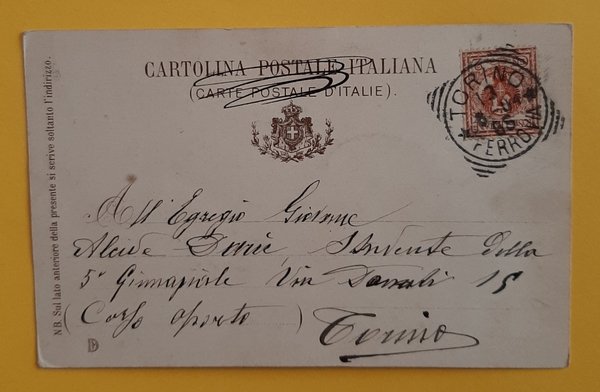 CARTOLINA POSTALE ITALIANA
(CARTE POSTALE D'ITALIE).
TORINO
FERROVIA
NB. Sul lato anteriore della presente si scrive soltanto l'indirizzo.
All' Egregio Giovane
Alcide Studente della
5ª Ginnasiale Via 15
(Corso Oporto)
Torino